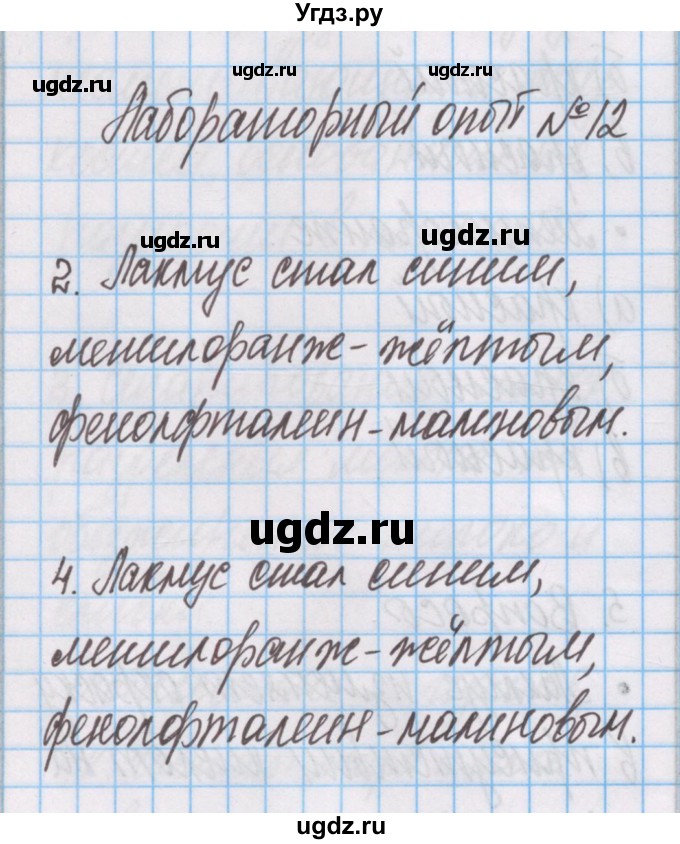 Угдз.ру
ugdz.ru ugdz.ru ugdz.ru
Лабораторный опыт №12
ugdz.ru ugdz.ru
2. Лакмус стал синим,
метилоранж - жёлтым,
фенолфталеин - малиновым.
ugdz.ru
4. Лакмус стал синим,
метилоранж - жёлтым,
фенолфталеин - малиновым.
ugdz.ru